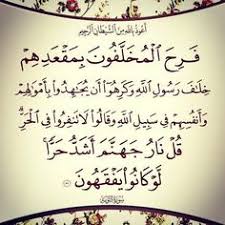 أعوذ بالله من الشيطان الرجيم
فَرِحَ الْمُخَلَّفُونَ بِمَقْعَدِهِمْ
خِلَافَ رَسُولِ اللَّهِ وَكَرِهُوا أَن يُجَاهِدُوا بِأَمْوَالِهِمْ
وَأَنفُسِهِمْ فِي سَبِيلِ اللَّهِ وَقَالُوا لَا تَنفِرُوا فِي الْحَرِّ
قُلْ نَارُ جَهَنَّمَ أَشَدُّ حَرًّا
لَّوْ كَانُوا يَفْقَهُونَ
سورة التوبة